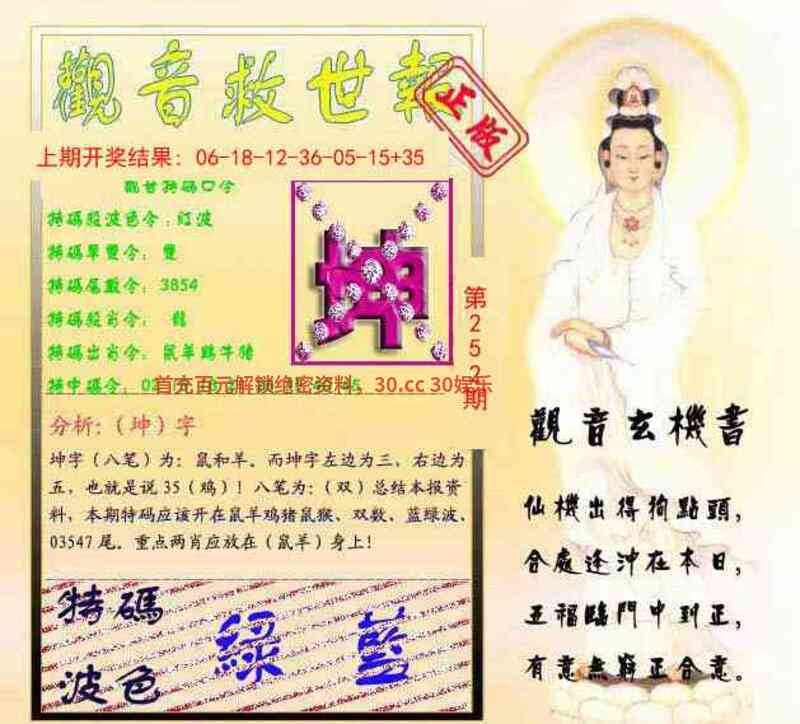 觀音救世報
正版
上期开奖结果：06-18-12-36-05-15+35
觀音特碼口令
特碼殺波色令：紅波
特碼單雙令：雙
特碼尾數令：3854
特碼殺肖令：龍
特碼出肖令：鼠羊鷄牛豬
特中碼令：
首充百元解锁绝密资料，30.cc 30娱乐
坤
第252期
分析：（坤）字
坤字（八笔）为：鼠和羊。而坤字左边为三，右边为
五，也就是说35（鸡）！八笔为：（双）总结本报资
料，本期特码应该开在鼠羊鸡猪鼠猴、双数、蓝绿波、
03547尾。重点两肖应放在（鼠羊）身上！
特碼 綠 藍
波色
觀音玄機書
仙機出得狗點頭，
合處逢沖在本日，
五福臨門中到正，
有意無窮正合意。